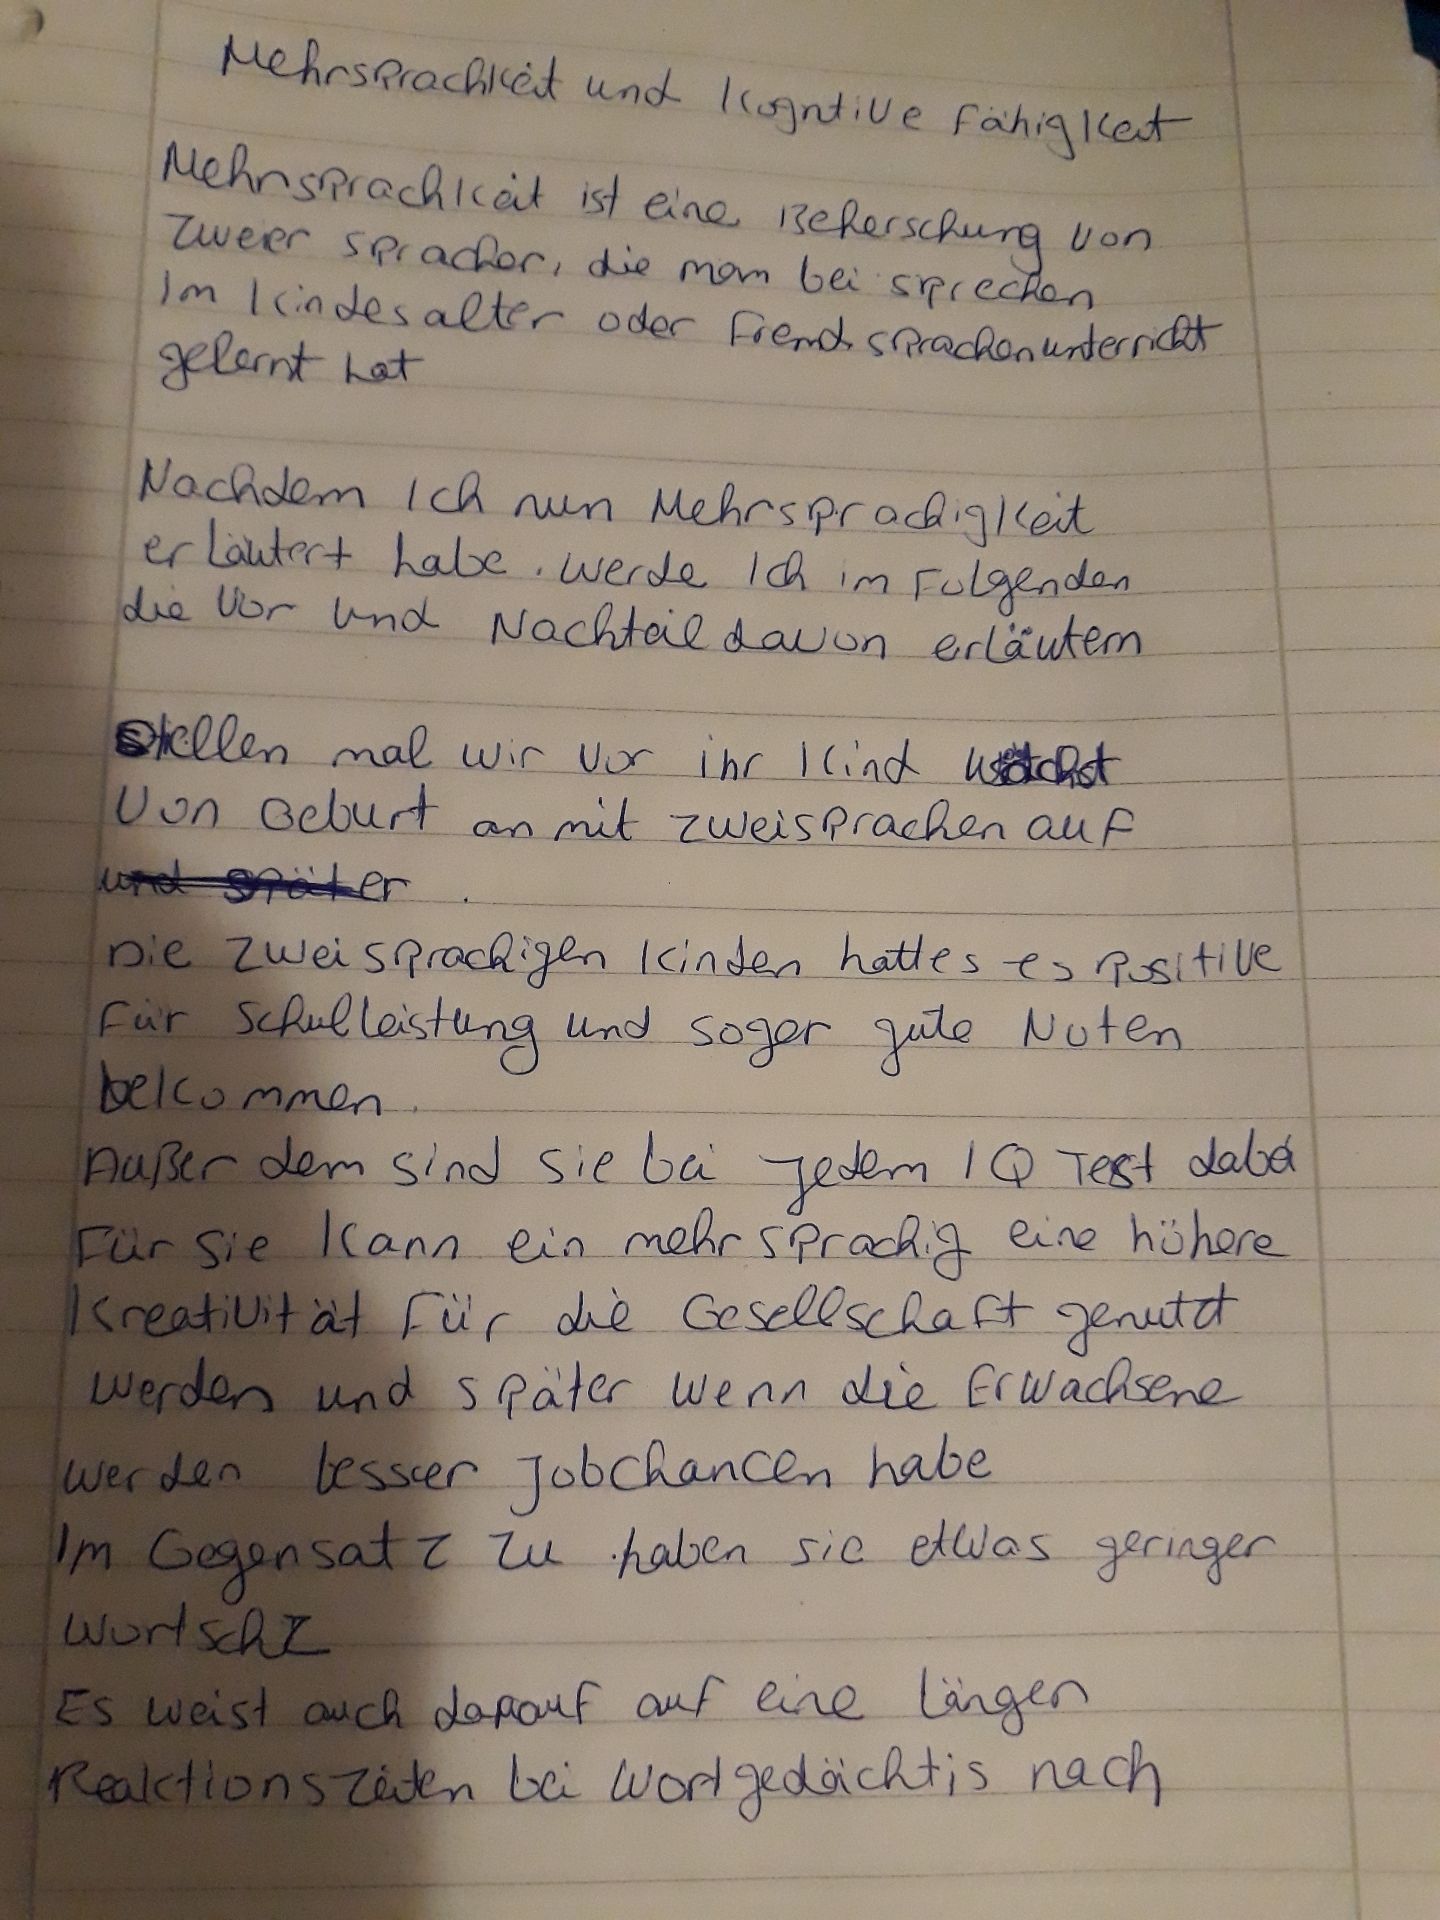 Mehrsprachkeit und Kogntive Fähigkeit
Mehrsprachkeit ist eine Beherschung von
zweier sprachen, die mam bei sprechen
Im Kindesalter oder Fremdsprachenunterricht
gelernt hat
Nachdem Ich nun Mehrsprachigkeit
erläutert habe. werde Ich im Folgenden
die Vor und Nachteil davon erläutern
stellen mal wir vor ihr Kind wächst
Von Geburt an mit zweisprachen auf
und später.
Die zweisprachigen Kinden hattes es Positive
Für Schulleistung und sogar gute Noten
bekommen.
Außer dem sind sie bei jedem IQ Test dabei
Für sie kann ein mehrsprachig eine höhere
Kreativität Für die Gesellschaft genutzt
werden und später wenn die Erwachsene
werden besser Jobchancen habe
Im Gegensatz zu haben sie etwas geringer
Wortschz
Es weist auch darauf auf eine längen
Reaktionszeiten bei Wortgedächtis nach